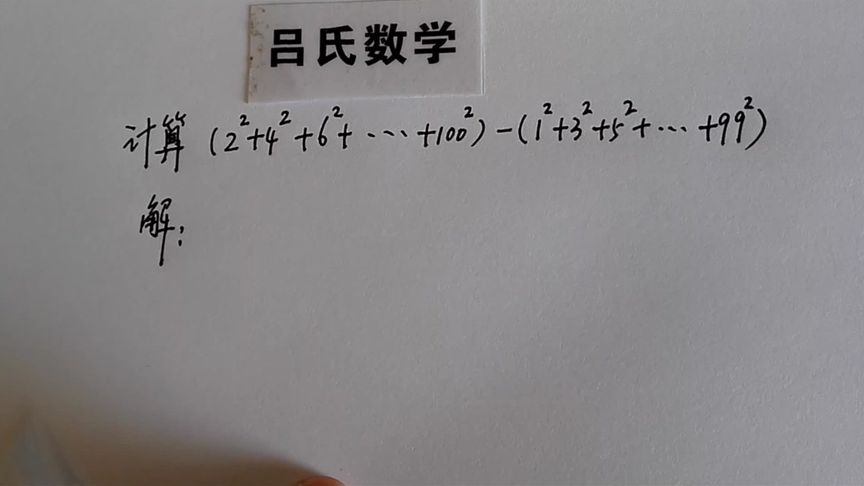 吕氏数学
计算 (2²+4²+6²+⋯+100²)-(1²+3²+5²+⋯+99²)
解: